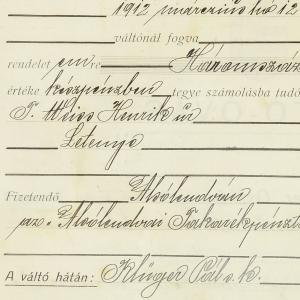 1912 marczius hó 12
váltónál fogva
rendelet en re Háromszáz
értéke készpénzben tegye számolásba tudó
T. Weiss Henrik úr
Letenye
Fizetendő Alsólendván
az Alsólendvai Takarékpénzt
A váltó hátán: Klüger Pál s. k.